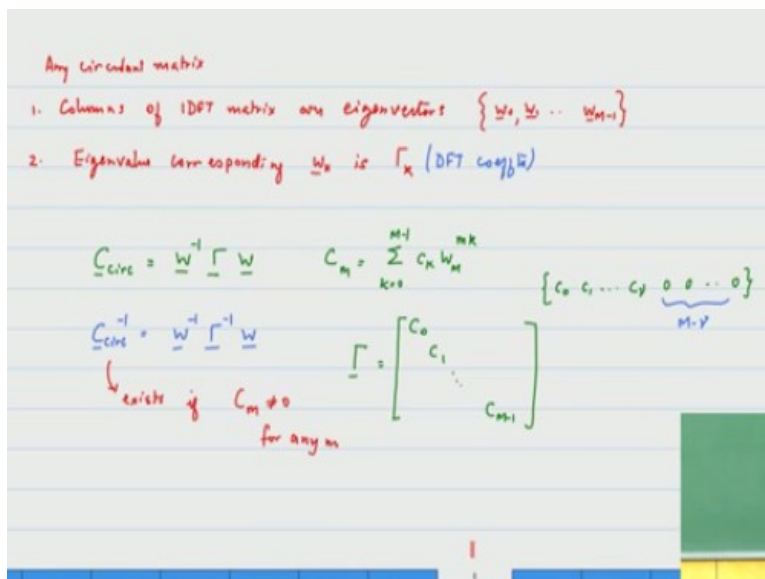 Any circulant matrix
1. Columns of IDFT matrix are eigenvectors { w₀, w₁ .. w_M-1 }
2. Eigenvalue corresponding w_k is Γ_k (DFT coeff)
C_circ = W⁻¹ Γ W C_m = Σ_{k=0}^{M-1} c_k W_M^{mk}
{ c₀ c₁ ... c_ν 0 0 .. 0 }
M-ν
C_circ⁻¹ = W⁻¹ Γ⁻¹ W Γ = [ C₀ C₁ ⋱ C_M-1 ]
exists if C_m ≠ 0
for any m